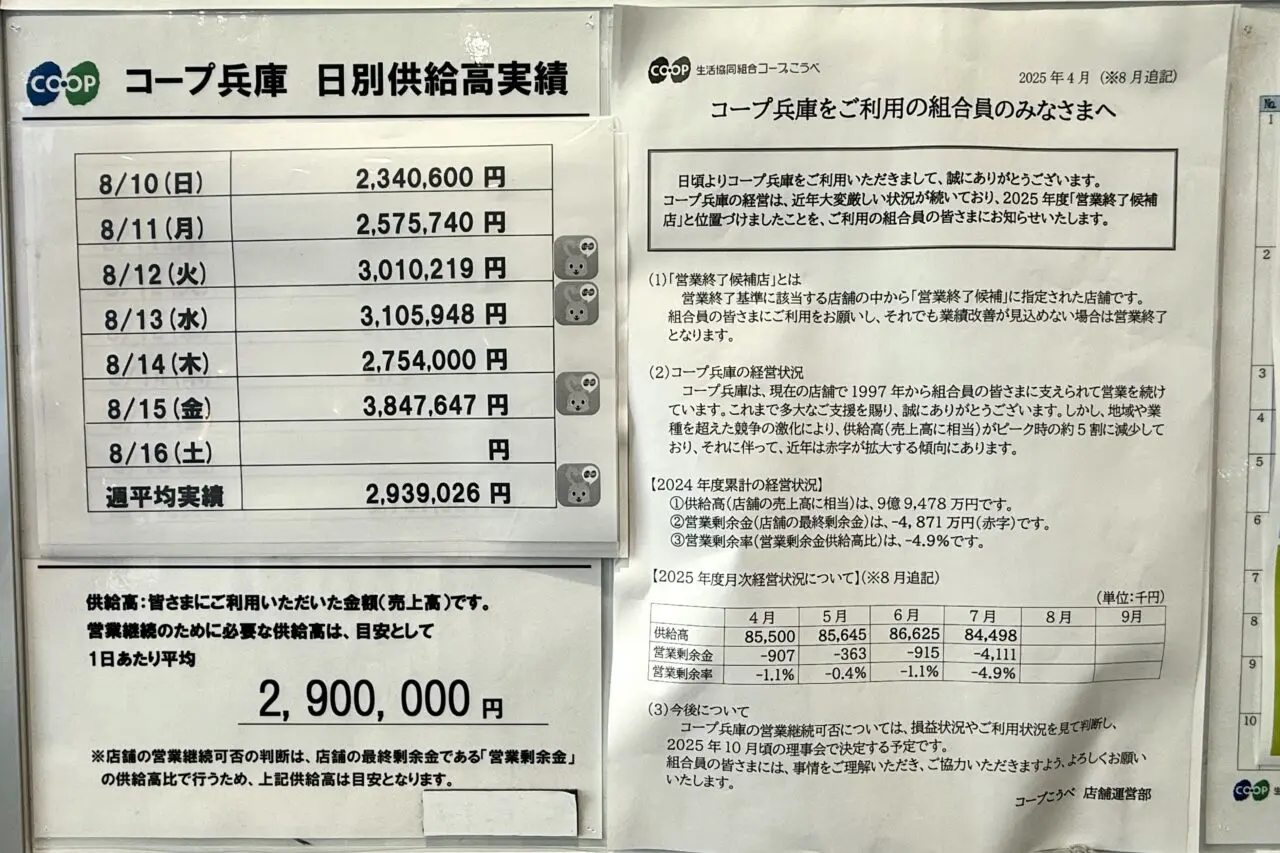 CO・OP コープ兵庫 日別供給高実績
8/10(日) 2,340,600 円
8/11(月) 2,575,740 円
8/12(火) 3,010,219 円
8/13(水) 3,105,948 円
8/14(木) 2,754,000 円
8/15(金) 3,847,647 円
8/16(土) 円
週平均実績 2,939,026 円
供給高:皆さまにご利用いただいた金額(売上高)です。
営業継続のために必要な供給高は、目安として
1日あたり平均
2,900,000 円
※店舗の営業継続可否の判断は、店舗の最終剰余金である「営業剰余金」
の供給高比で行うため、上記供給高は目安となります。
CO・OP 生活協同組合コープこうべ
2025年4月(※8月追記)
コープ兵庫をご利用の組合員のみなさまへ
日頃よりコープ兵庫をご利用いただきまして、誠にありがとうございます。
コープ兵庫の経営は、近年大変厳しい状況が続いており、2025年度「営業終了候補
店」と位置づけましたことを、ご利用の組合員の皆さまにお知らせいたします。
(1)「営業終了候補店」とは
営業終了基準に該当する店舗の中から「営業終了候補」に指定された店舗です。
組合員の皆さまにご利用をお願いし、それでも業績改善が見込めない場合は営業終了
となります。
(2)コープ兵庫の経営状況
コープ兵庫は、現在の店舗で1997年から組合員の皆さまに支えられて営業を続け
ています。これまで多大なご支援を賜り、誠にありがとうございます。しかし、地域や業
種を超えた競争の激化により、供給高(売上高に相当)がピーク時の約5割に減少して
おり、それに伴って、近年は赤字が拡大する傾向にあります。
【2024年度累計の経営状況】
①供給高(店舗の売上高に相当)は、9億9,478万円です。
②営業剰余金(店舗の最終剰余金)は、-4,871万円(赤字)です。
③営業剰余率(営業剰余金供給高比)は、-4.9%です。
【2025年度月次経営状況について】(※8月追記)
(単位:千円)
4月 5月 6月 7月 8月 9月
供給高 85,500 85,645 86,625 84,498
営業剰余金 -907 -363 -915 -4,111
営業剰余率 -1.1% -0.4% -1.1% -4.9%
(3)今後について
コープ兵庫の営業継続可否については、損益状況やご利用状況を見て判断し、
2025年10月頃の理事会で決定する予定です。
組合員の皆さまには、事情をご理解いただき、ご協力いただきますよう、よろしくお願い
いたします。
コープこうべ 店舗運営部
No.
1
2
3
4
5
6
7
8
9
10
CO・OP 生